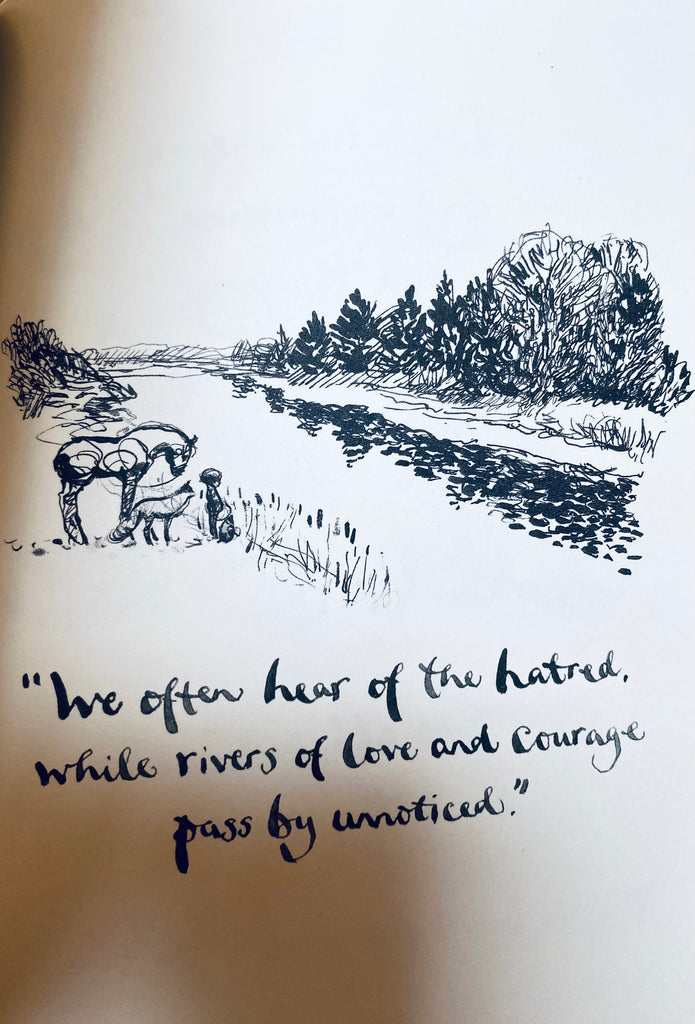 "We often hear of the hatred,
while rivers of love and courage
pass by unnoticed."